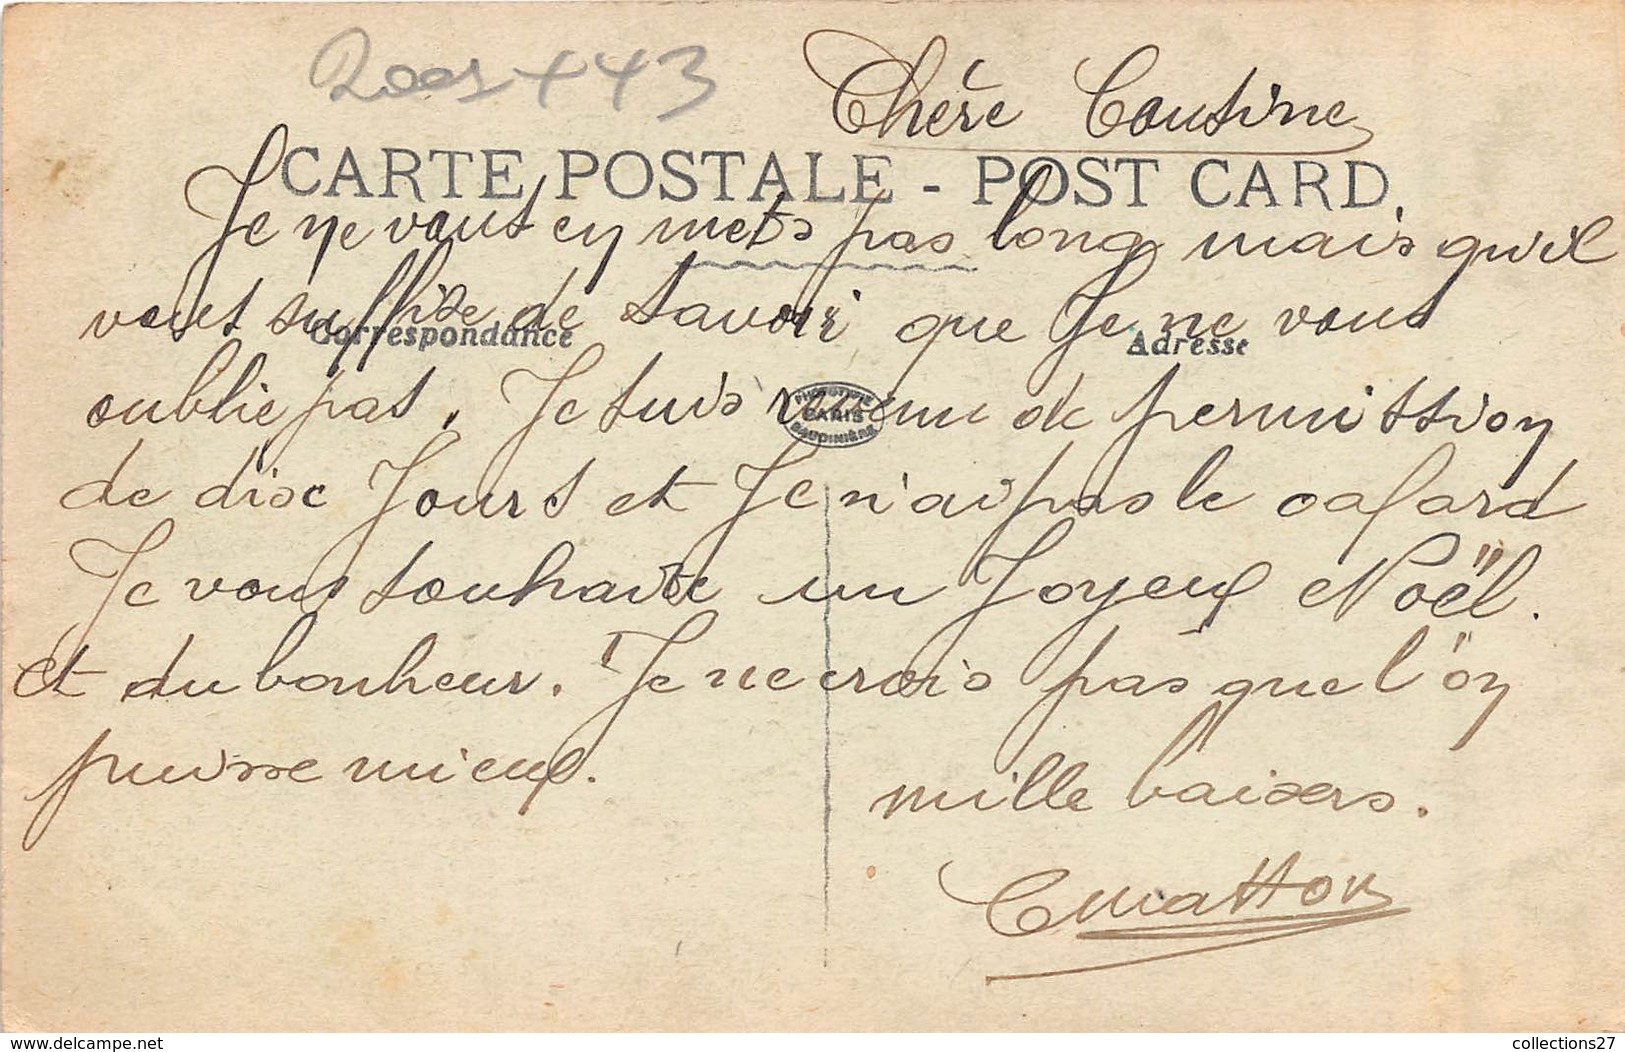 Chère Cousine
CARTE POSTALE - POST CARD
Je ne vous en mets pas long mais qu'il
vous suffise de savoir que Je ne vous
Correspondance
Adresse
oublie pas. Je suis revenu de permission
PHOTOTYPIE
PARIS
BAUDINIÈRE
de dix Jours et Je n'ai pas le cafard
Je vous souhaite un Joyeux Noël.
et du bonheur. Je ne crois pas que l'on
puisse mieux.
mille baisers.
delcampe.net
collections27